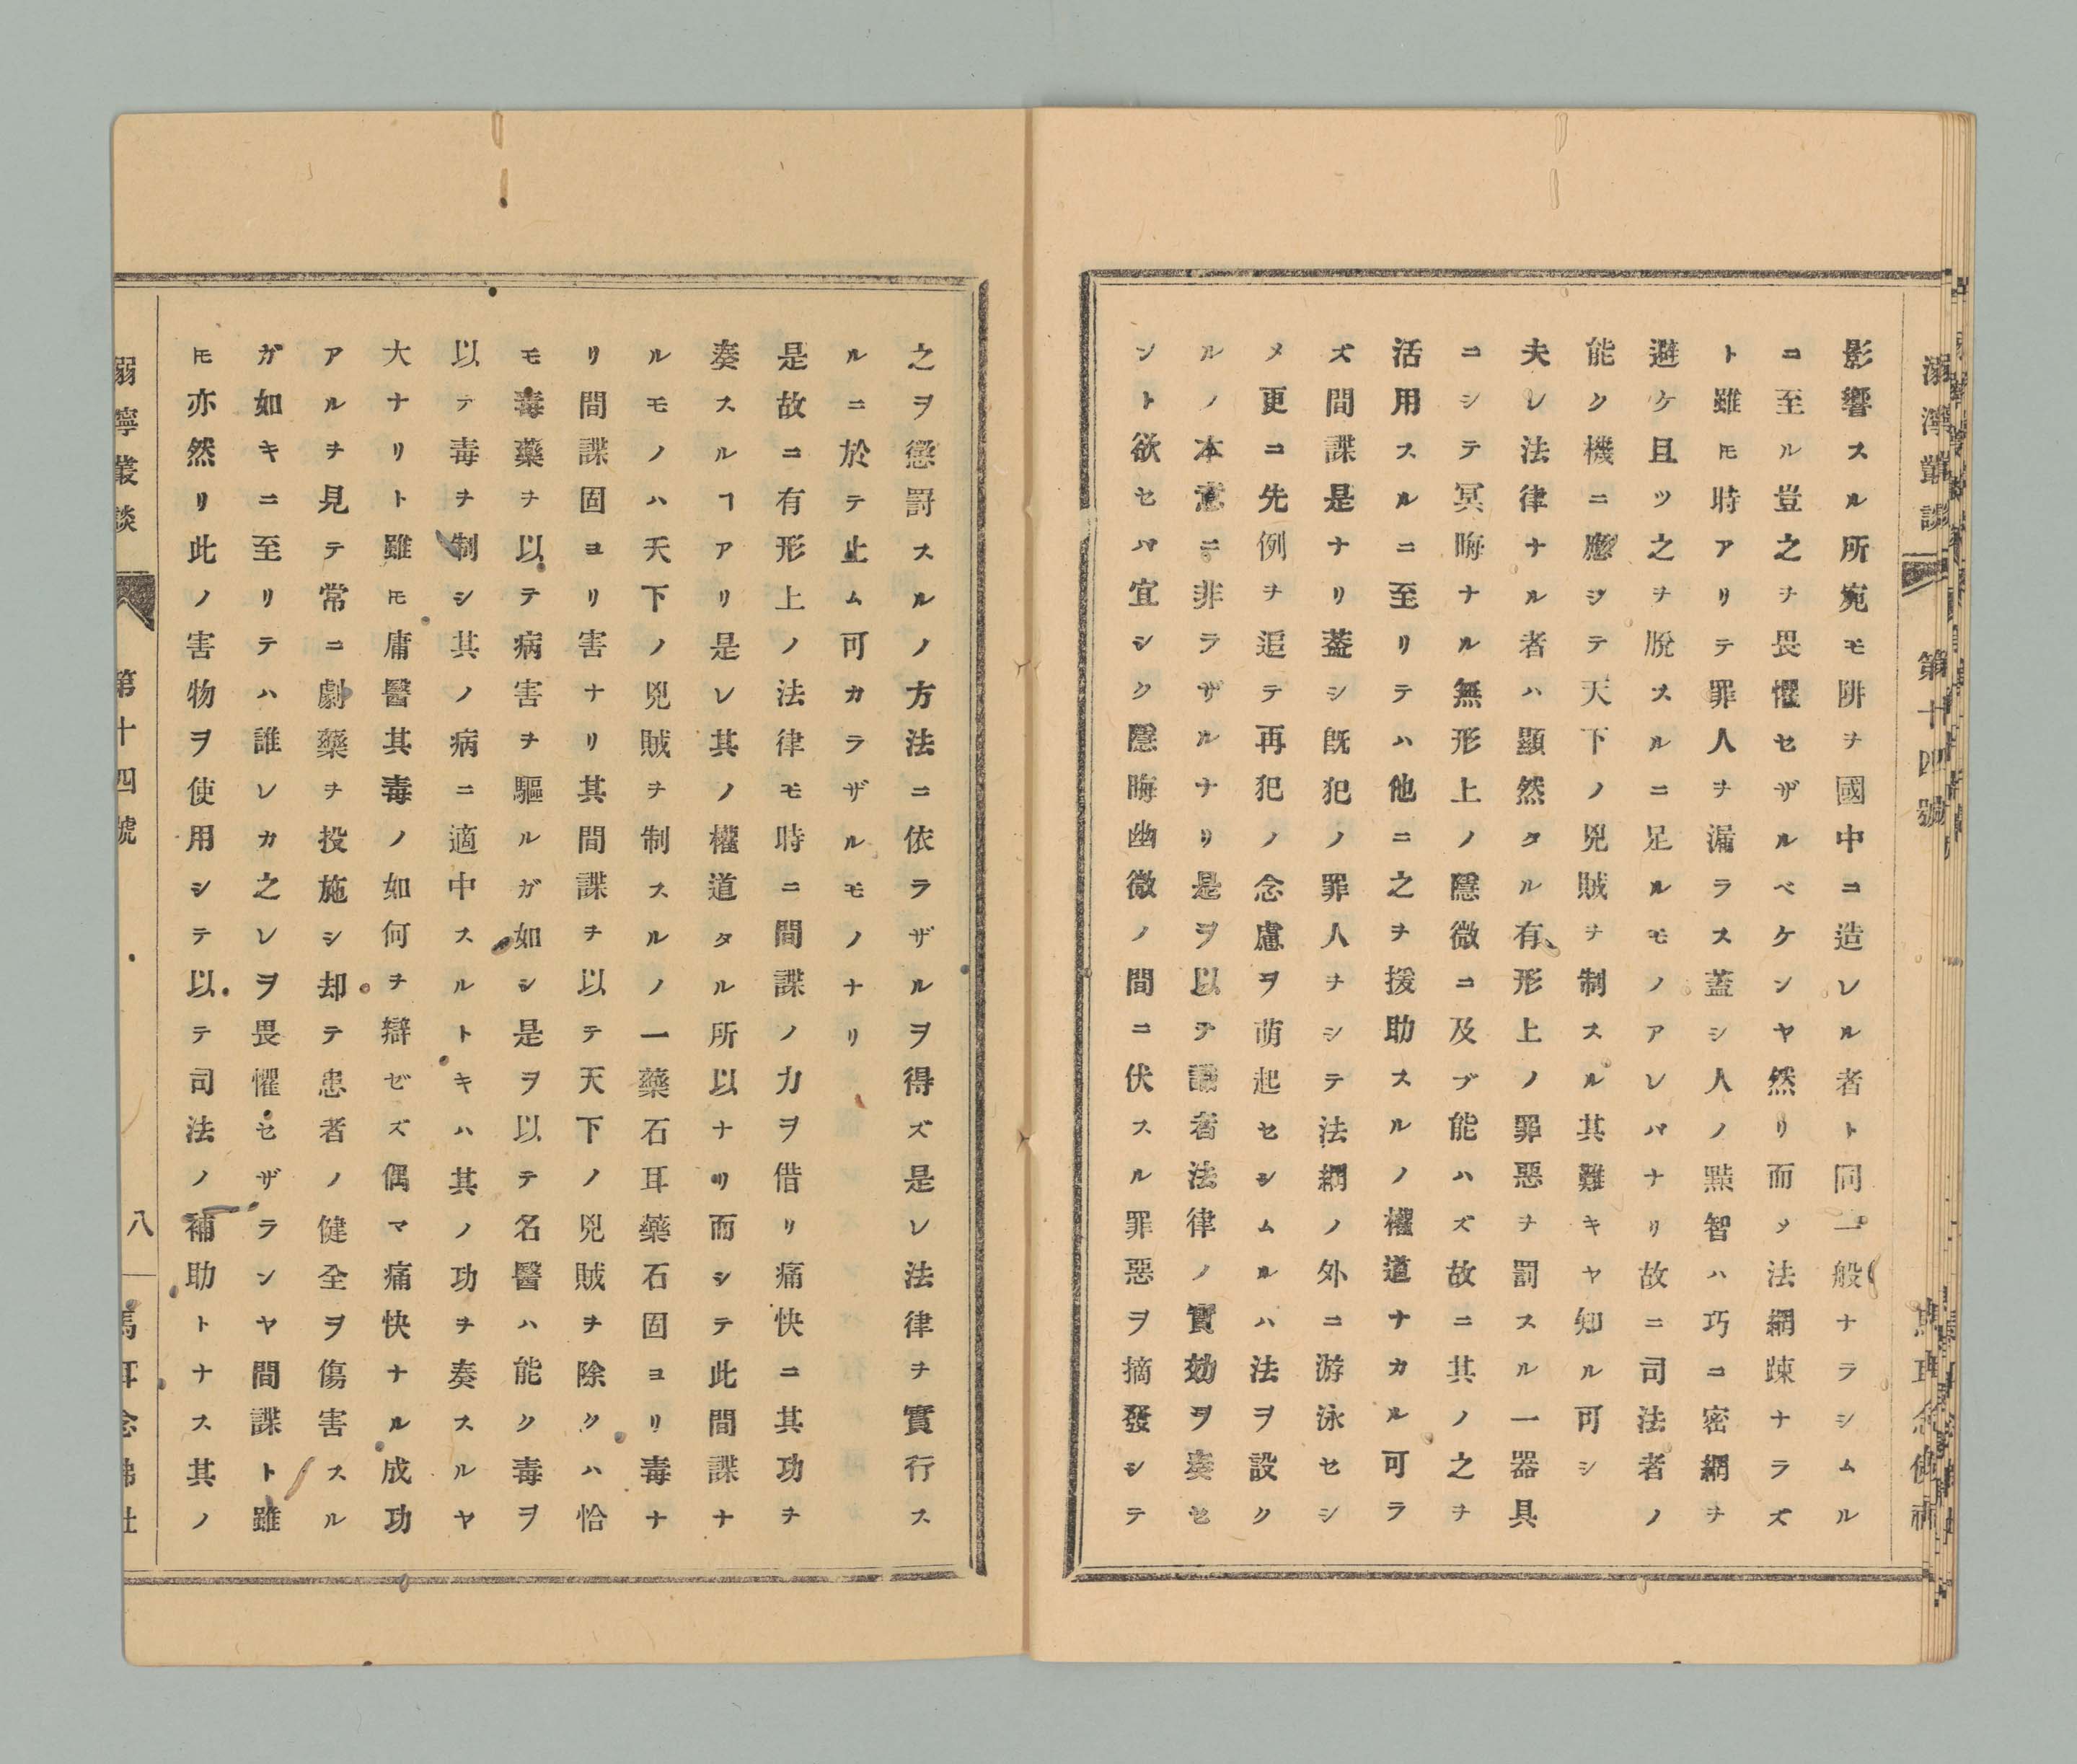 影響スル所宛モ阱ヲ國中ニ造レル者ト同一般ナラシムル
ニ至ル豈之ヲ畏懼セザルベケンヤ然リ而メ法網踈ナラズ
ト雖𪜈時アリテ罪人ヲ漏ラス蓋シ人ノ黠智ハ巧ニ密網ヲ
避ケ且ツ之ヲ脱スルニ足ルモノアレバナリ故ニ司法者ノ
能ク機ニ應ジテ天下ノ兇賊ヲ制スル其難キヤ知ル可シ
夫レ法律ナル者ハ顯然タル有形上ノ罪惡ヲ罰スル一器具
ニシテ冥晦ナル無形上ノ隱微ニ及ブ能ハズ故ニ其ノ之ヲ
活用スルニ至リテハ他ニ之ヲ援助スルノ權道ナカル可ラ
ズ間諜是ナリ蓋シ既犯ノ罪人ヲシテ法網ノ外ニ游泳セシ
メ更ニ先例ヲ追テ再犯ノ念慮ヲ萌起セシムルハ法ヲ設ク
ルノ本意ニ非ラザルナリ是ヲ以テ識者法律ノ實効ヲ奏セ
ント欲セバ宜シク隱晦幽微ノ間ニ伏スル罪惡ヲ摘發シテ
第十四號
之ヲ懲罰スルノ方法ニ依ラザルヲ得ズ是レ法律ヲ實行ス
ルニ於テ止ム可カラザルモノナリ
是故ニ有形上ノ法律モ時ニ間諜ノ力ヲ借リ痛快ニ其功ヲ
奏スルヿアリ是レ其ノ權道タル所以ナリ而シテ此間諜ナ
ルモノハ天下ノ兇賊ヲ制スルノ一藥石耳藥石固ヨリ毒ナ
リ間諜固ヨリ害ナリ其間諜ヲ以テ天下ノ兇賊ヲ除クハ恰
モ毒藥ヲ以テ病害ヲ驅ルガ如シ是ヲ以テ名醫ハ能ク毒ヲ
以テ毒ヲ制シ其ノ病ニ適中スルトキハ其ノ功ヲ奏スルヤ
大ナリト雖𪜈庸醫其毒ノ如何ヲ辯ゼズ偶マ痛快ナル成功
アルヲ見テ常ニ劇藥ヲ投施シ却テ患者ノ健全ヲ傷害スル
ガ如キニ至リテハ誰レカ之レヲ畏懼セザランヤ間諜ト雖
𪜈亦然リ此ノ害物ヲ使用シテ以テ司法ノ補助トナス其ノ
濘叢談 第十四號 八 馬耳念佛社